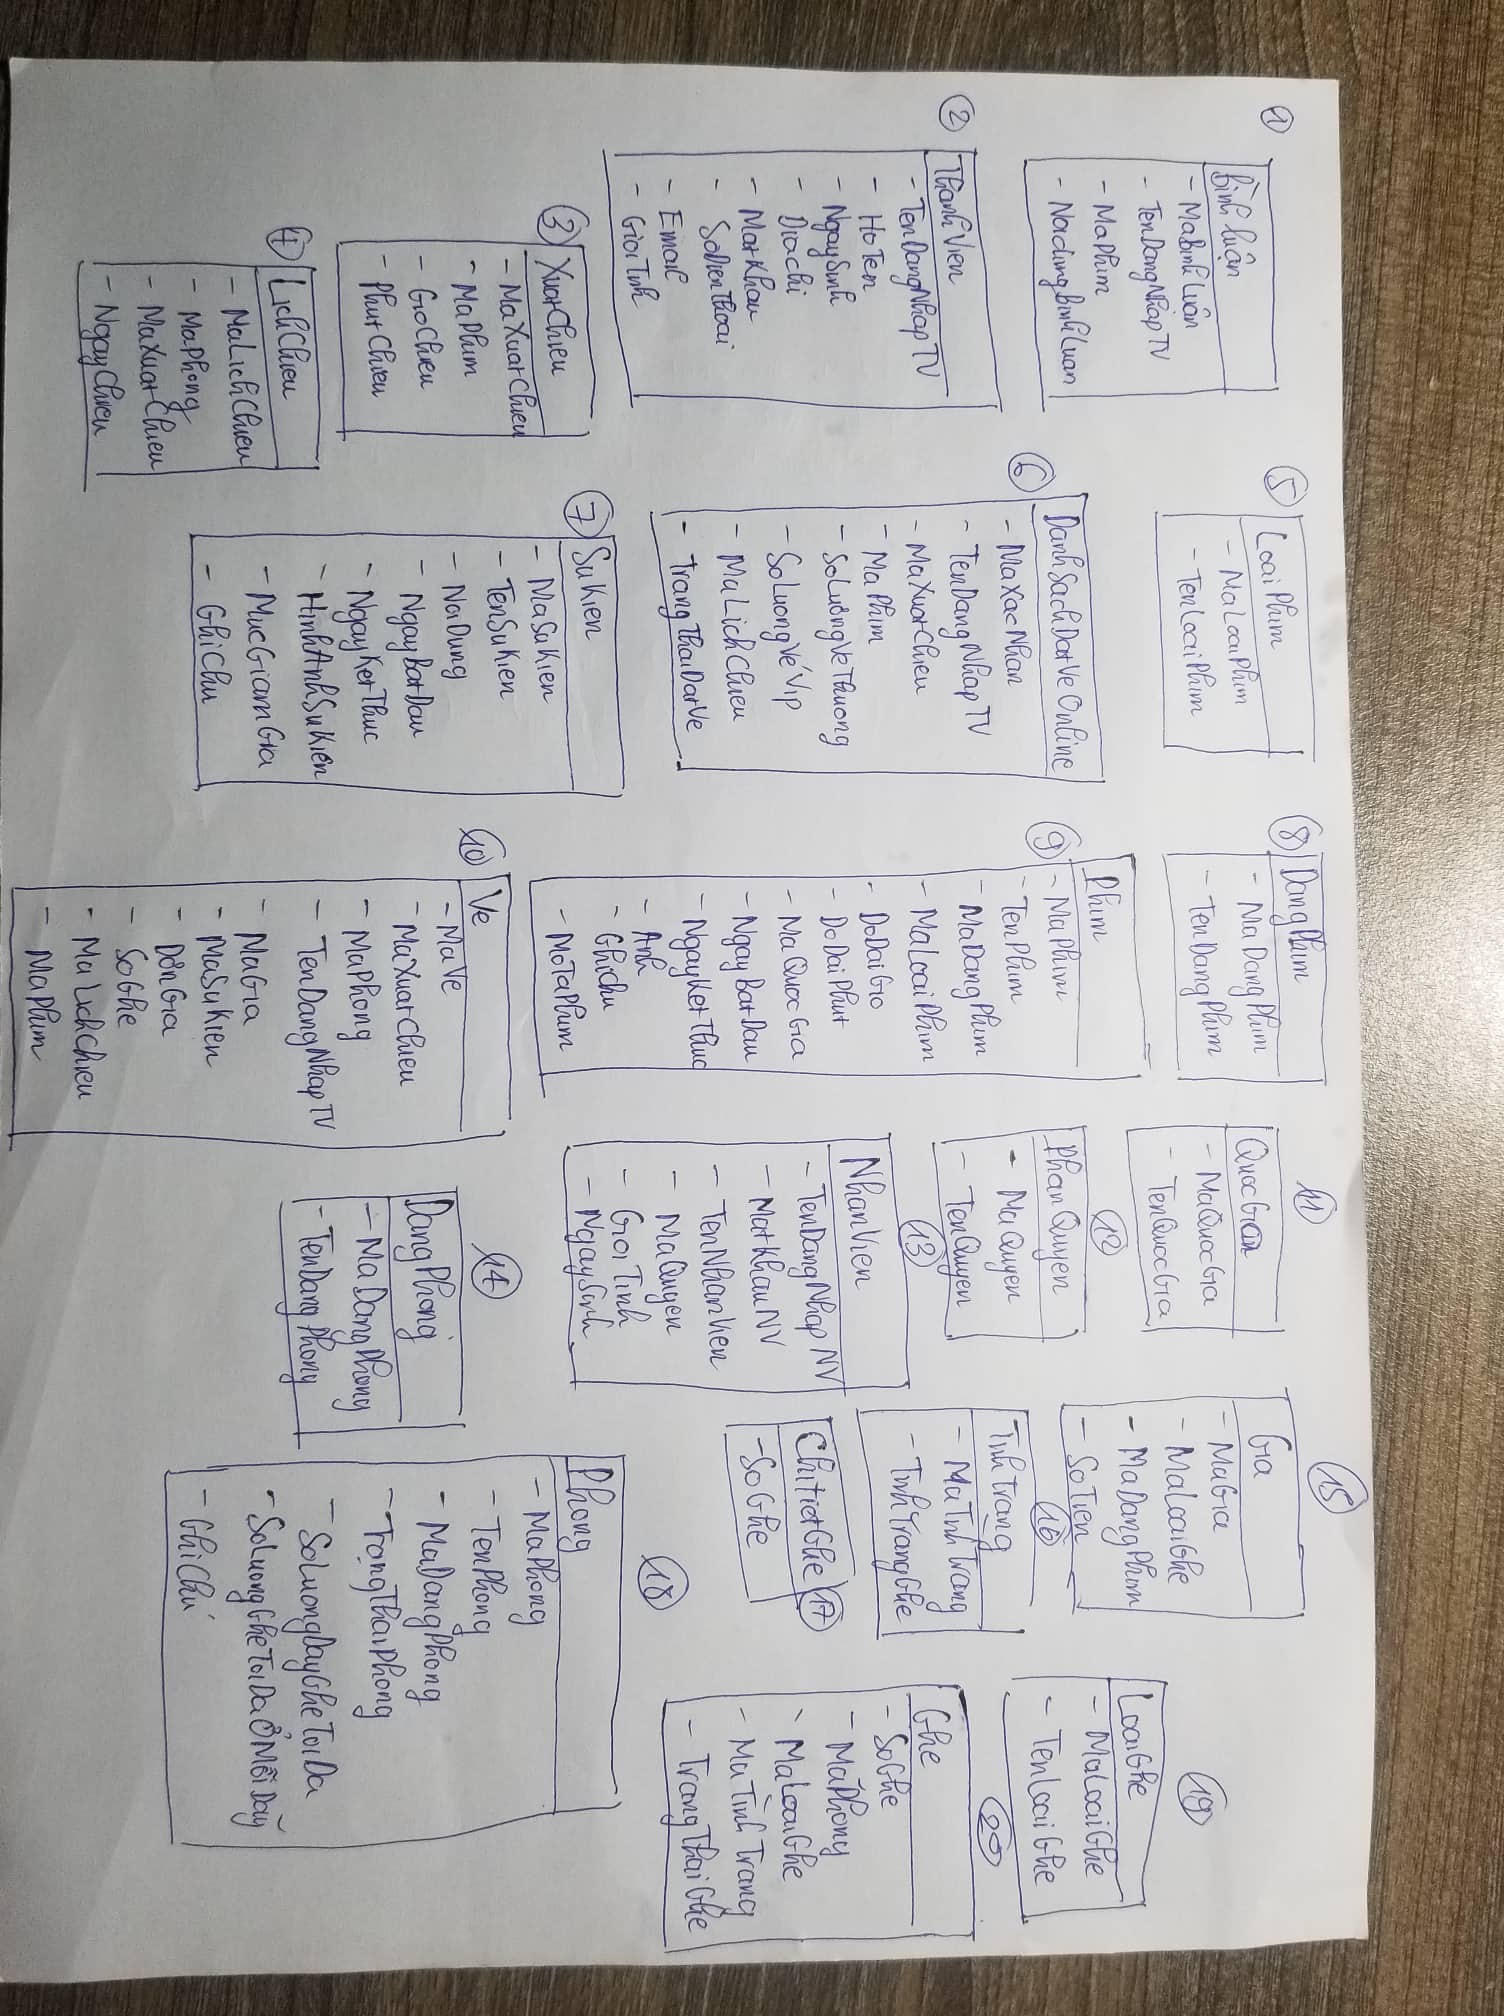 1
Bình luận
- MaBinhLuận
- TenDangNhapTV
- MaPhim
- NoidungBinhLuan
2
ThanhVien
- TenDangNhapTV
- HoTen
- NgaySinh
- Diachi
- MatKhau
- SoDienThoai
- Email
- GioiTinh
3
XuatChieu
- MaXuatChieu
- MaPhim
- GioChieu
- PhutChieu
4
LichChieu
- MaLichChieu
- MaPhong
- MaXuatChieu
- NgayChieu
5
LoaiPhim
- MaLoaiPhim
- TenLoaiPhim
6
DanhSachDatVeOnline
- MaXacNhan
- TenDangNhapTV
- MaXuatChieu
- MaPhim
- SoLuongVeThuong
- SoLuongVéVip
- MaLichChieu
- TrangThaiDatVe
7
SuKien
- MaSuKien
- TenSuKien
- NoiDung
- NgayBatDau
- NgayKetThuc
- HinhAnhSuKien
- MucGiamGia
- GhiChu
8
DangPhim
- MaDangPhim
- TenDangPhim
9
Phim
- MaPhim
- TenPhim
- MaDangPhim
- MaLoaiPhim
- DoDaiGio
- DoDaiPhut
- MaQuocGia
- NgayBatDau
- NgayKetThuc
- Anh
- Ghichu
- MoTaPhim
10
Ve
- MaVe
- MaXuatChieu
- MaPhong
- TenDangNhapTV
- MaGia
- MaSuKien
- DonGia
- SoGhe
- MaLichChieu
- MaPhim
11
QuocGia
- MaQuocGia
- TenQuocGia
12
PhanQuyen
- MaQuyen
- TenQuyen
13
NhanVien
- TenDangNhapNV
- MatKhauNV
- TenNhanVien
- MaQuyen
- GioiTinh
- NgaySinh
14
DangPhong
- MaDangPhong
- TenDangPhong
15
Gia
- MaGia
- MaLoaiGhe
- MaDangPhim
- SoTien
16
TinhTrang
- MaTinhTrang
- TinhTrangGhe
17
ChitietGhe
- SoGhe
18
Phong
- MaPhong
- TenPhong
- MaDangPhong
- TrạngThaiPhong
- SoLuongDayGheToiDa
- SoLuongGheToiDaỞMỗiDãy
- GhiChú
19
LoaiGhe
- MaLoaiGhe
- TenLoaiGhe
20
Ghe
- SoGhe
- MaPhong
- MaLoaiGhe
- MaTinhTrang
- TrangThaiGhe